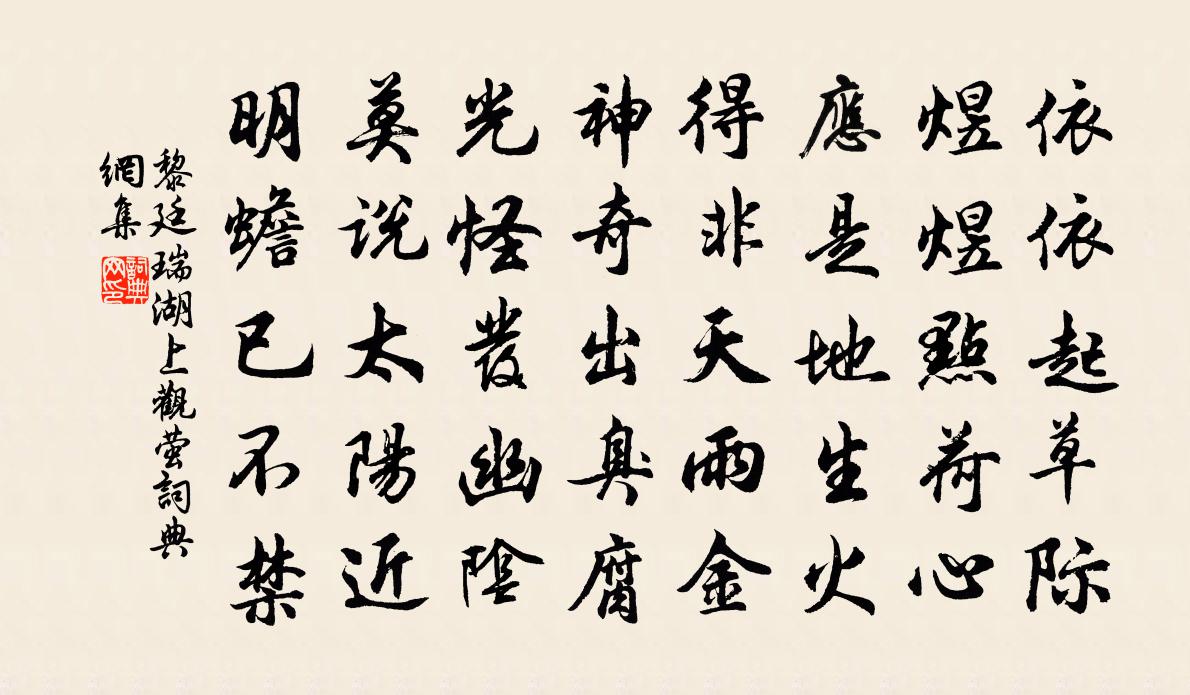 依依起草际
煜煜點荷心
應是地生火
得非天雨金
神奇出臭腐
光怪發幽陰
莫说太陽近
明蟾已不禁
黎廷瑞湖上觀萤詞典
網集
詞典
网印